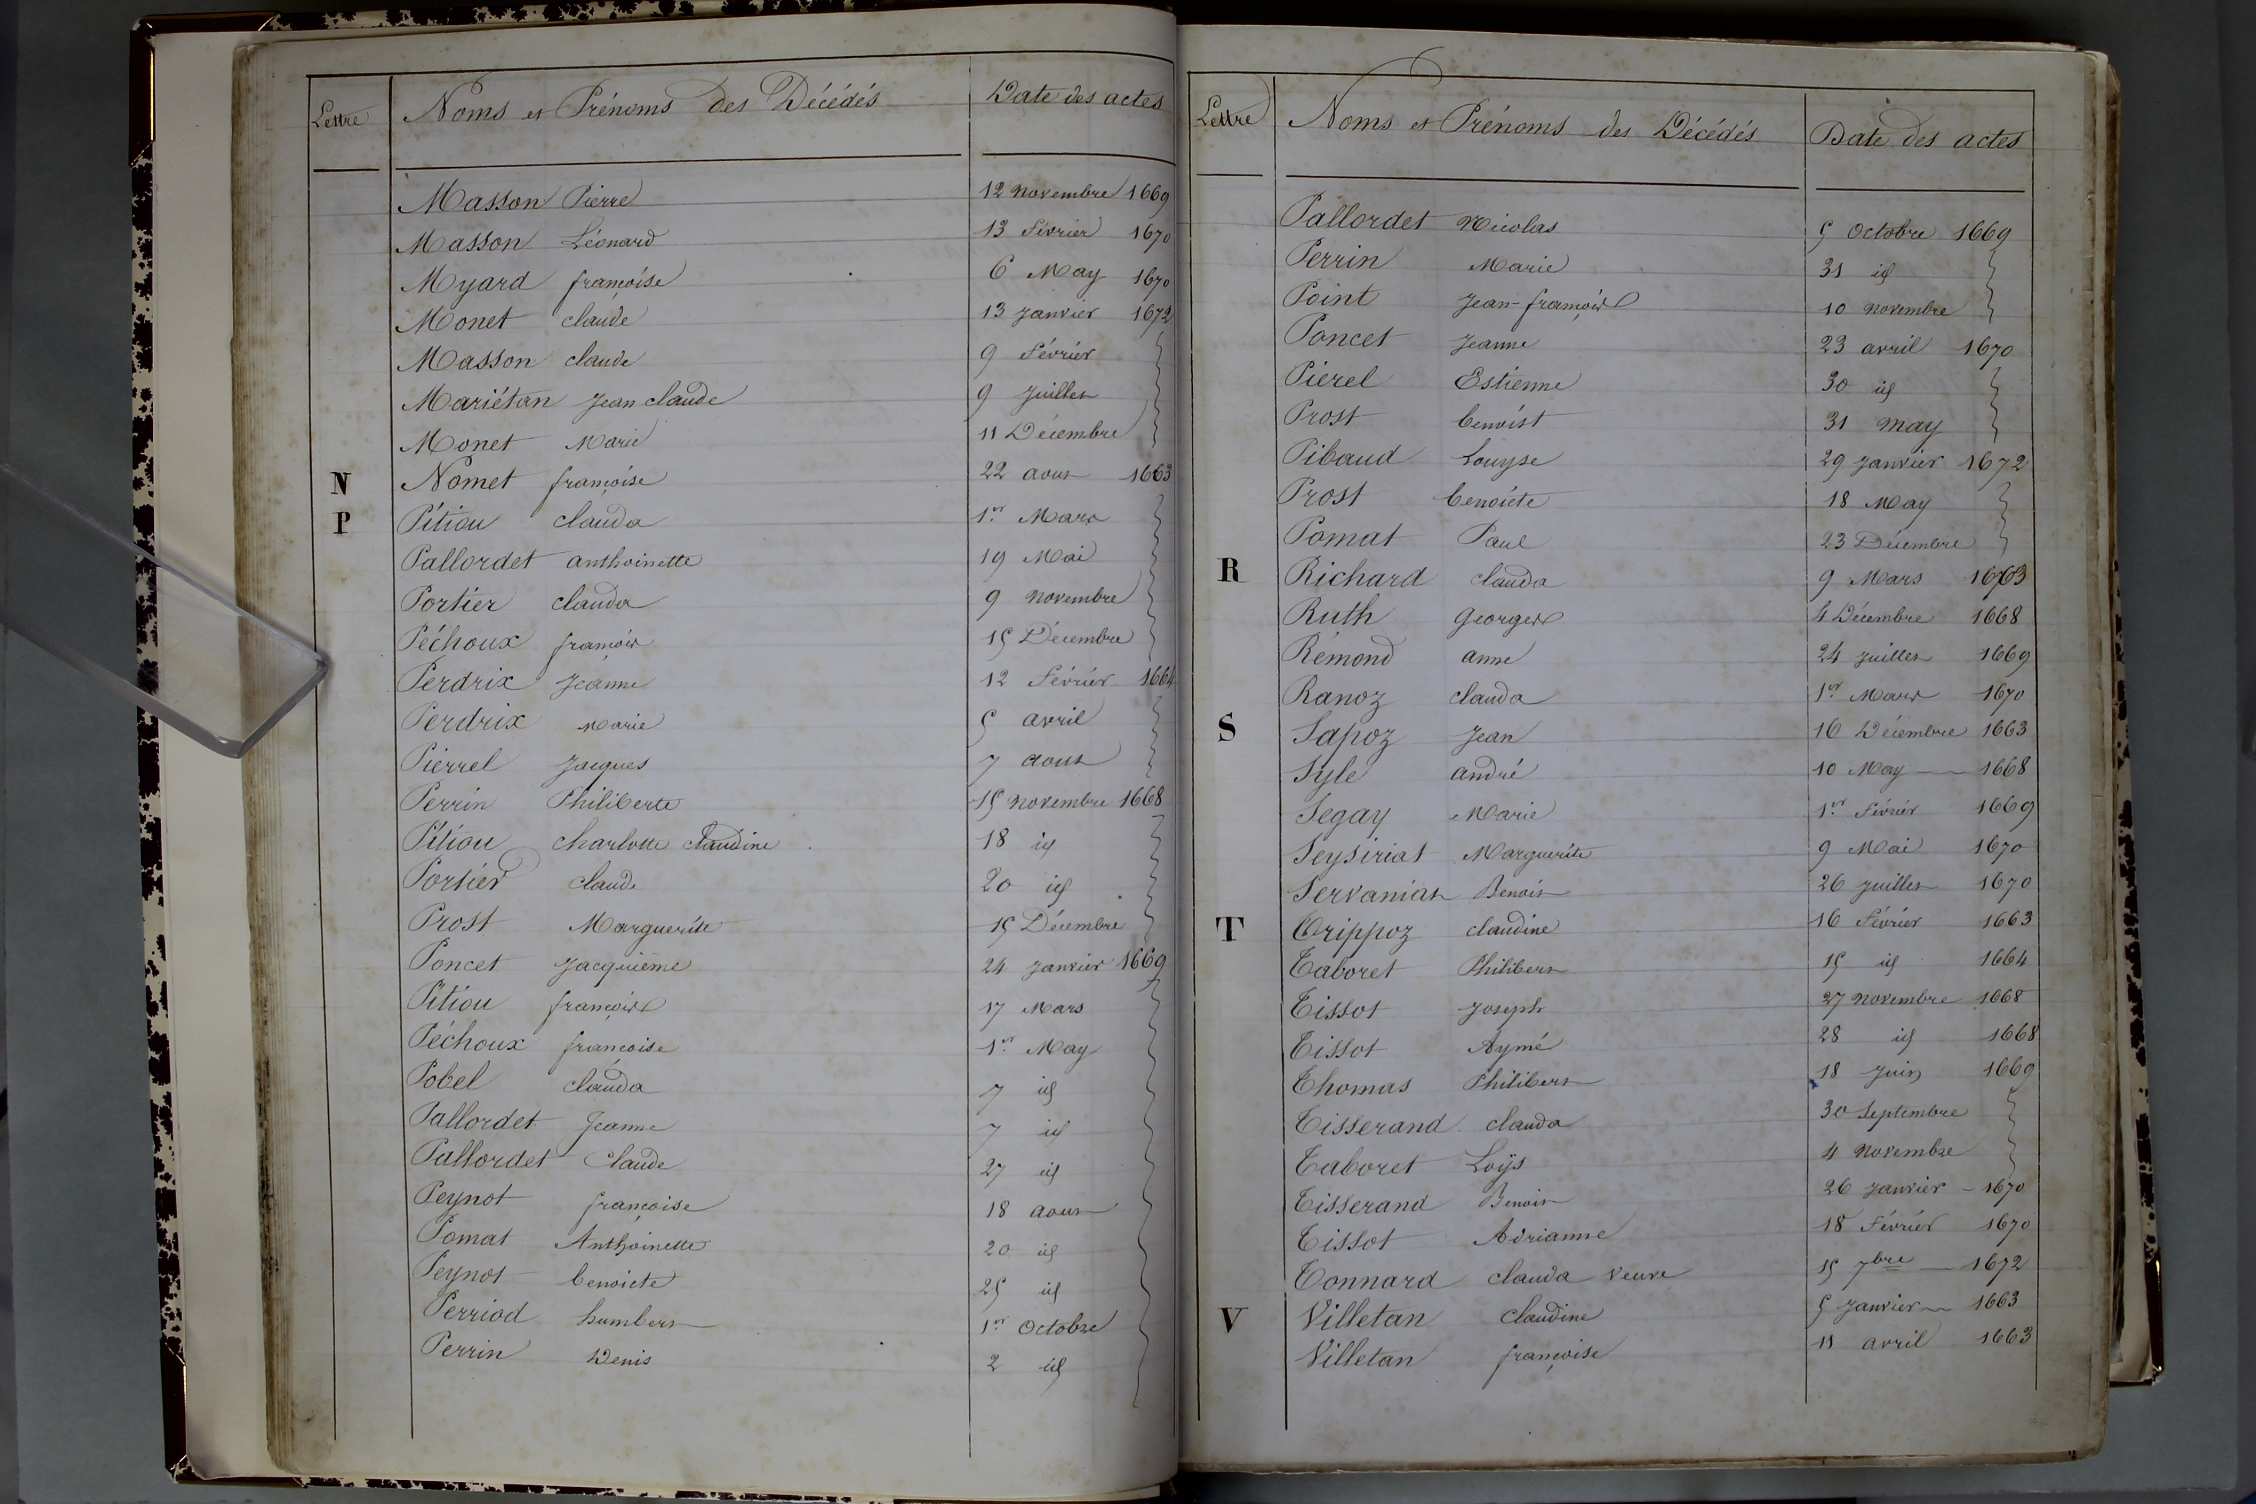 Lettre Noms et Prénoms des Décédés Date des actes
Masson Pierre 12 novembre 1669
Masson Léonard 13 Février 1670
Myard françoise 6 May 1670
Monet claude 13 janvier 1672
Masson claude 9 Février
Mariétan jean claude 9 juillet
Monet Marie 11 Décembre
N Nomet françoise 22 aout 1663
P Pitiou clauda 1er Mars
Pallordet anthoinette 19 Mai
Portier clauda 9 novembre
Péchoux françois 15 Décembre
Perdrix jeanne 12 Février 1664
Perdrix Marie 5 avril
Pierrel jacques 7 aout
Perrin Philiberte 15 novembre 1668
Pitiou charlotte claudine 18 id
Portier claude 20 id
Prost Marguerite 15 Décembre
Poncet jacquième 24 janvier 1669
Pitiou françois 17 Mars
Péchoux francoise 1er May
Pobel clauda 7 id
Pallordet jeanne 7 id
Pallordet claude 27 id
Peynot françoise 18 aout
Pomat Anthoinette 20 id
Peynot benoicte 25 id
Perriod humbert 1er Octobre
Perrin Denis 2 id
Lettre Noms et Prénoms des Décédés Date des actes
Pallordet Nicolas 5 Octobre 1669
Perrin Marie 31 id
Point jean-françois 10 novembre
Poncet jeanne 23 avril 1670
Pierel Estienne 30 id
Prost benoist 31 may
Pibaud Louyse 29 janvier 1672
Prost benoicte 18 May
Pomat Paul 23 Décembre
R Richard clauda 9 Mars 1663
Ruth georges 4 Décembre 1668
Rémond anne 24 juillet 1669
Ranoz clauda 1er Mars 1670
S Sapoz jean 16 Décembre 1663
Syle andré 10 May 1668
Segay Marie 1er Février 1669
Seysiriat Marguerite 9 Mai 1670
Servaniat Benoit 26 juillet 1670
T Trippoz claudine 16 Février 1663
Taboret Philibert 15 id 1664
Tissot joseph 27 novembre 1668
Tissot Aymé 28 id 1668
Thomas Philibert 18 juin 1669
Tisserand clauda 30 septembre
Taboret Loÿs 4 novembre
Tisserand Benoit 26 janvier - 1670
Tissot Adrianne 18 Février 1670
Tonnard clauda veuve 15 7bre 1672
V Villetan claudine 5 janvier 1663
Villetan françoise 11 avril 1663